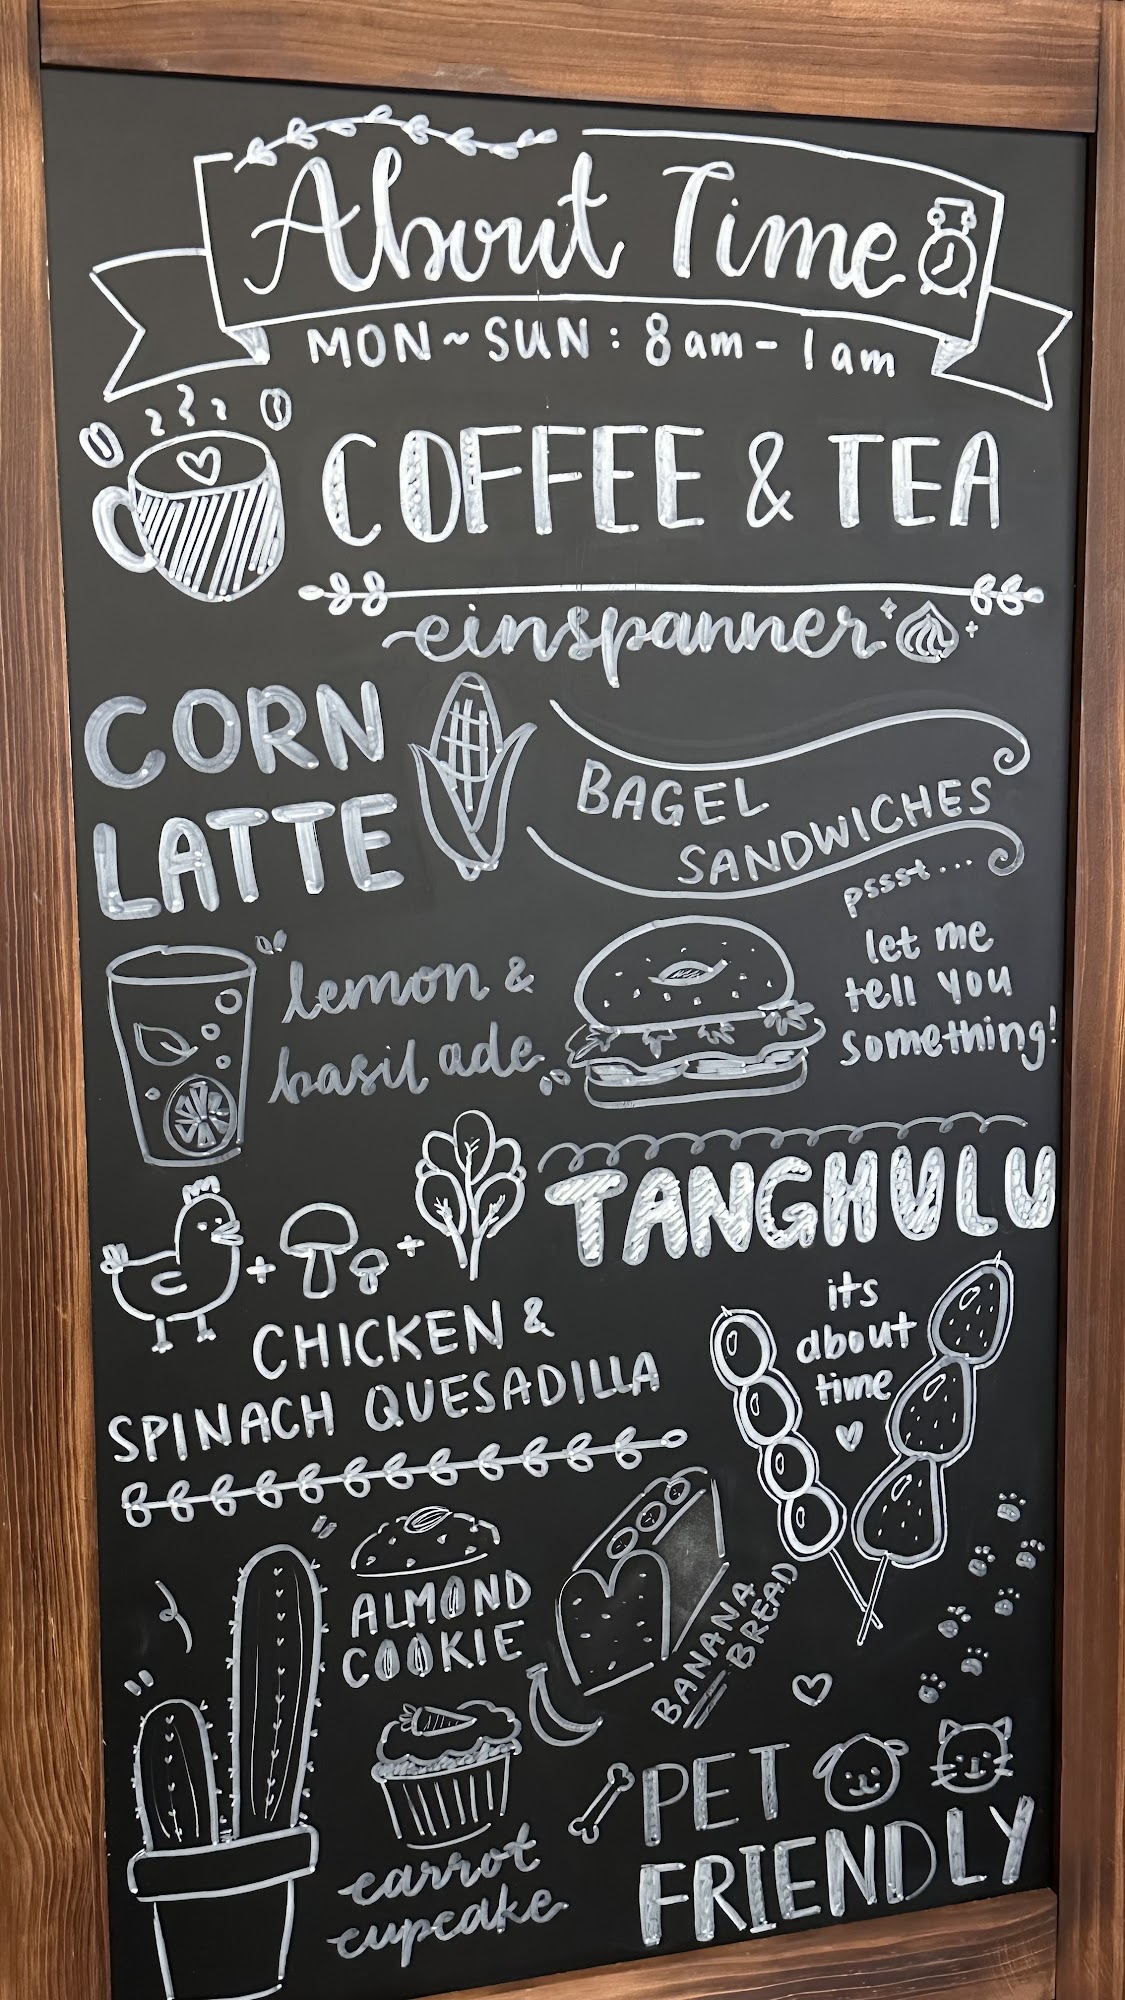 About Time
MON ~ SUN : 8am - 1am
COFFEE & TEA
einspanner
CORN
LATTE
BAGEL
SANDWICHES
pssst...
let me
tell you
something!
lemon &
basil ade
TANGHULU
its
about
time
CHICKEN &
SPINACH QUESADILLA
ALMOND
COOKIE
BANANA
BREAD
carrot
cupcake
PET
FRIENDLY